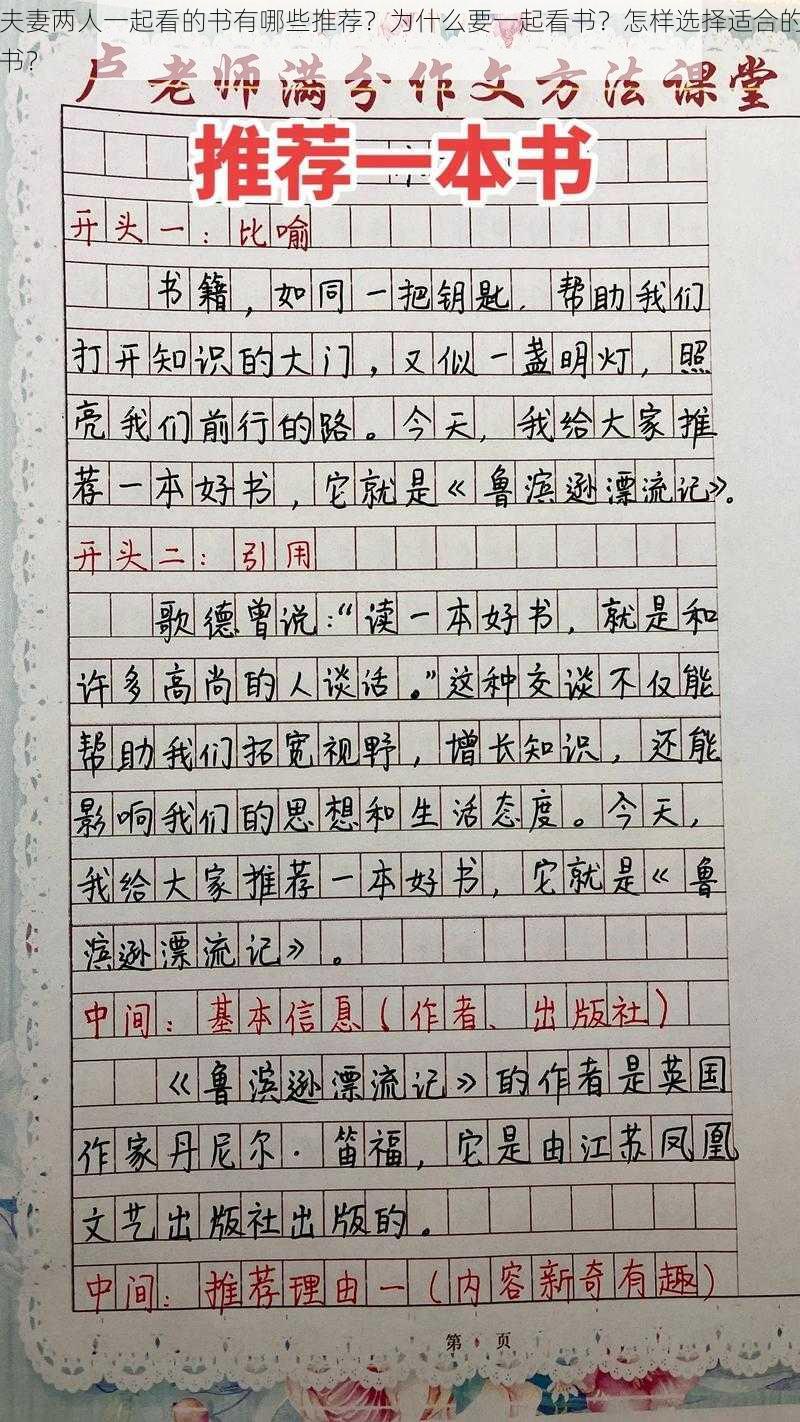 夫妻两人一起看的书有哪些推荐？为什么要一起看书？怎样选择适合的
书？
卢老师满分作文方法课堂
推荐一本书
开头一：比喻
书籍，如同一把钥匙．帮助我们
打开知识的大门，又似一盏明灯，照
亮我们前行的路。今天，我给大家推
荐一本好书，它就是《鲁滨逊漂流记》。
开头二：引用
歌德曾说：“读一本好书，就是和
许多高尚的人谈话。”这种交谈不仅能
帮助我们拓宽视野，增长知识，还能
影响我们的思想和生活态度。今天，
我给大家推荐一本好书，它就是《鲁
滨逊漂流记》。
中间：基本信息（作者、出版社）
《鲁滨逊漂流记》的作者是英国
作家丹尼尔·笛福，它是由江苏凤凰
文艺出版社出版的。
中间：推荐理由一（内容新奇有趣）
第 页